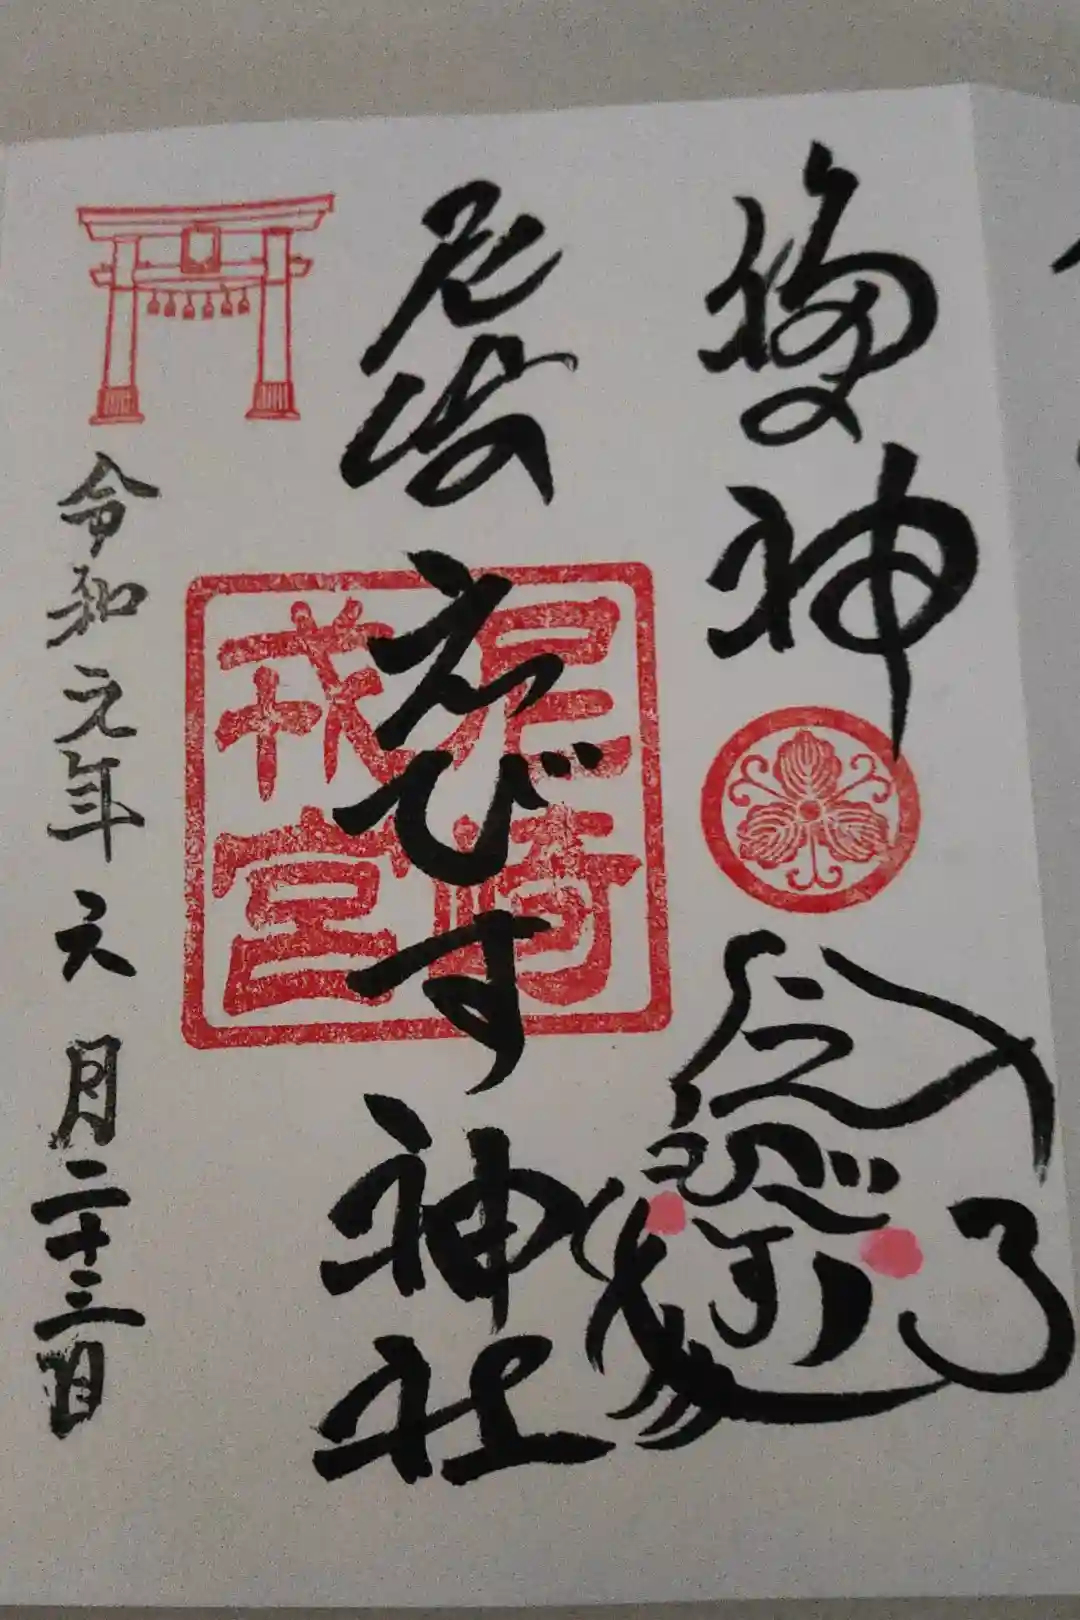 神
尼崎えびす神社
尼崎
戎宮
令和元年六月二十三日